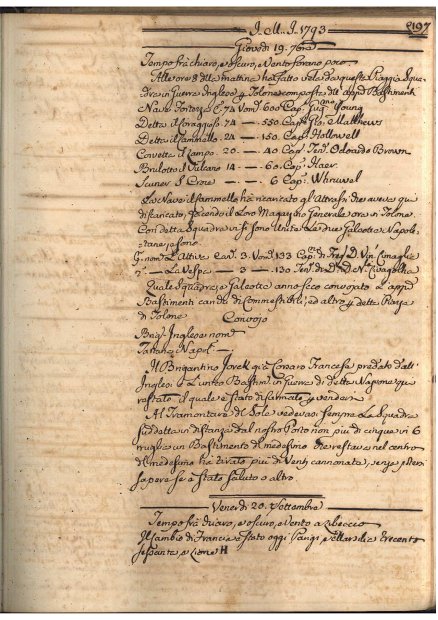 I. M. I. 1793
197
Giovedì 19. 7bre
Tempo frà chiaro, e oscuro, e Vento forano poco
Alle ore 8 della mattina ha fatto vela da questa Piaggia Squa
dra in Guerra Inglese p Tolone composta di app.i Bastimenti
Nave Fortezza C. 74 Vom. 600 Cap. Young
Detta il Coraggioso 74 — 550 Cap. Gio. Matthews
Detta il 24 — 150. Cap. Hollwell
Corvetta il Lampo 20 — 40 Cap. Ten. Odoardo Brown
Brulotto il Vulcano 14 — 60. Cap. Haer
Scuner S. Croce — — 6 Cap.
La Nave il ha ricaricato gl'Attrasi che aveva qui
discaricato, facendo il Loro Magazino Generale ora in Tolone
Con detta Squadra vi si sono Unite Le due Galeotte Napole
tane
L'Altiva Can. 3 Vom. 133 Cap.
2.a — La Vespa — 3 — 130
Quale Squadra, e Galeotte anno seco convoiato app.i
Bastimenti carichi di Commestibili, ed altro p detta Piazza
di Tolone
Convojo
Brig. Inglese nom.
Tartana Napol. —
Il Brigantino Jorck già Corsaro Francese predato dall'
Inglesi è L'unico Bastim. in Guerra di detta Nazione qui
restato, il quale è stato disarmato p vendersi
Al Tramontare del Sole vedevasi sempre La Squadra
sud.tta in distanza dal nostro Porto non più di cinque in 6
miglia un Bastimento del medesimo che restava nel centro
del medesimo ha tirato più di Venti cannonate, senza potersi
sapere se è stato saluto o altro
Venerdì 20. Settembre
Tempo frà chiaro, e oscuro, e Vento a Libeccio
Il Cambio di Francia è stato oggi Parigi e Marsilia trecento
sessanta e Lione